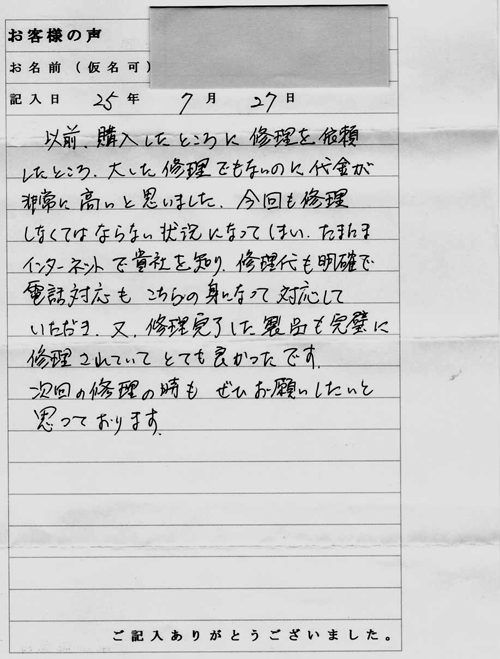 お客様の声
お名前(仮名可)
記入日 25年 7月 27日
以前、購入したところに修理を依頼
したところ、大した修理でもないのに代金が
非常に高いと思いました。今回も修理
しなくてはならない状況になってしまい、たまたま
インターネットで貴社を知り、修理代も明確で
電話対応もこちらの身になって対応して
いただき、又、修理完了した製品も完璧に
修理されていてとても良かったです。
次回の修理の時もぜひお願いしたいと
思っております。
ご記入ありがとうございました。